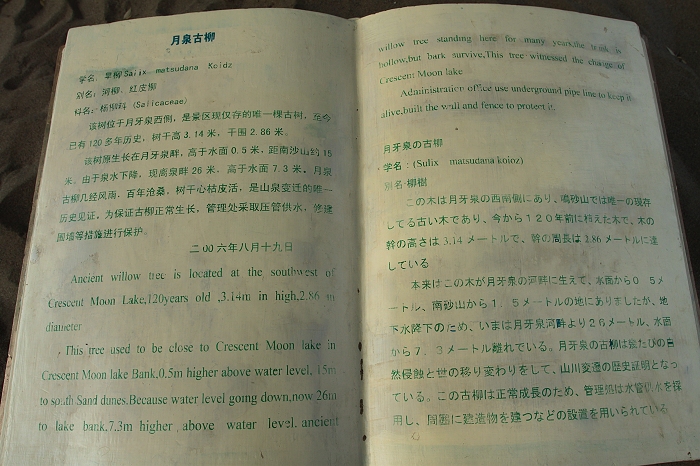 月泉古柳
学名：旱柳Salix matsudana Koidz
别名：河柳，红皮柳
科名：杨柳科（Salicaceae）
该树位于月牙泉西侧，是景区现仅存的唯一棵古树，至今
已有120多年历史，树干高3.14米，干围2.86米。
该树原生长在月牙泉畔，高于水面0.5米，距南沙山约15
米。由于泉水下降，现离泉畔26米，高于水面7.3米。月泉
古柳几经风雨，百年沧桑，树干心枯皮活，是山泉变迁的唯一
历史见证。为保证古柳正常生长，管理处采取压管供水，修建
围墙等措施进行保护。
二00六年八月十九日
Ancient willow tree is located at the southwest of
Crescent Moon Lake,120years old ,3.14m in high,2.86 m
diameter
This tree used to be close to Crescent Moon lake in
Crescent Moon lake Bank,0.5m higher above water level, 15m
to south Sand dunes.Because water level going down,now 26m
to lake bank,7.3m higher above water level. ancient
willow tree standing here for many years,the trunk is
hollow,but bark survive,This tree witnessed the change of
Crescent Moon lake
Administration office use underground pipe line to keep it
alive,built the wall and fence to protect it.
月牙泉の古柳
学名：(Sulix matsudana koioz)
别名:柳樹
この木は月牙泉の西南側にあり、鳴砂山では唯一の現存
してる古い木であり、今から１２０年前に植えた木で、木の
幹の高さは3.14メートルで、幹の周長は2.86メートルに達
している
本来はこの木が月牙泉の河畔に生えて、水面から０ 5メ
ートル、南砂山から１．５メートルの地にありましたが、地
下水降下のため、いまは月牙泉河畔より２６メートル、水面
から７．３メートル離れている。月牙泉の古柳は絵たびの自
然侵蝕と世の移り変わりをして、山川変遷の歴史証明となっ
ている。この古柳は正常成長のため、管理処は水管供水を採
用し、周囲に建造物を建つなどの設置を用いられている